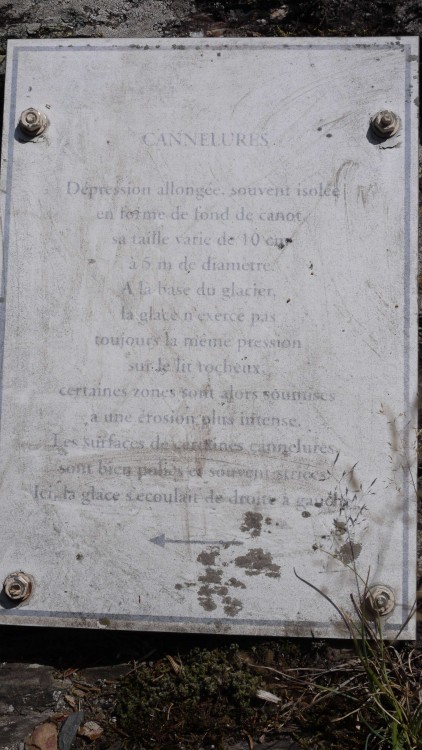 CANNELURES
Dépression allongée, souvent isolée
en forme de fond de canot,
sa taille varie de 10 cm
à 5 m de diamètre.
A la base du glacier,
la glace n'exerce pas
toujours la même pression
sur le lit rocheux,
certaines zones sont alors soumises
à une érosion plus intense.
Les surfaces de certaines cannelures
sont bien polies et souvent striées.
Ici, la glace s'écoulait de droite à gauche